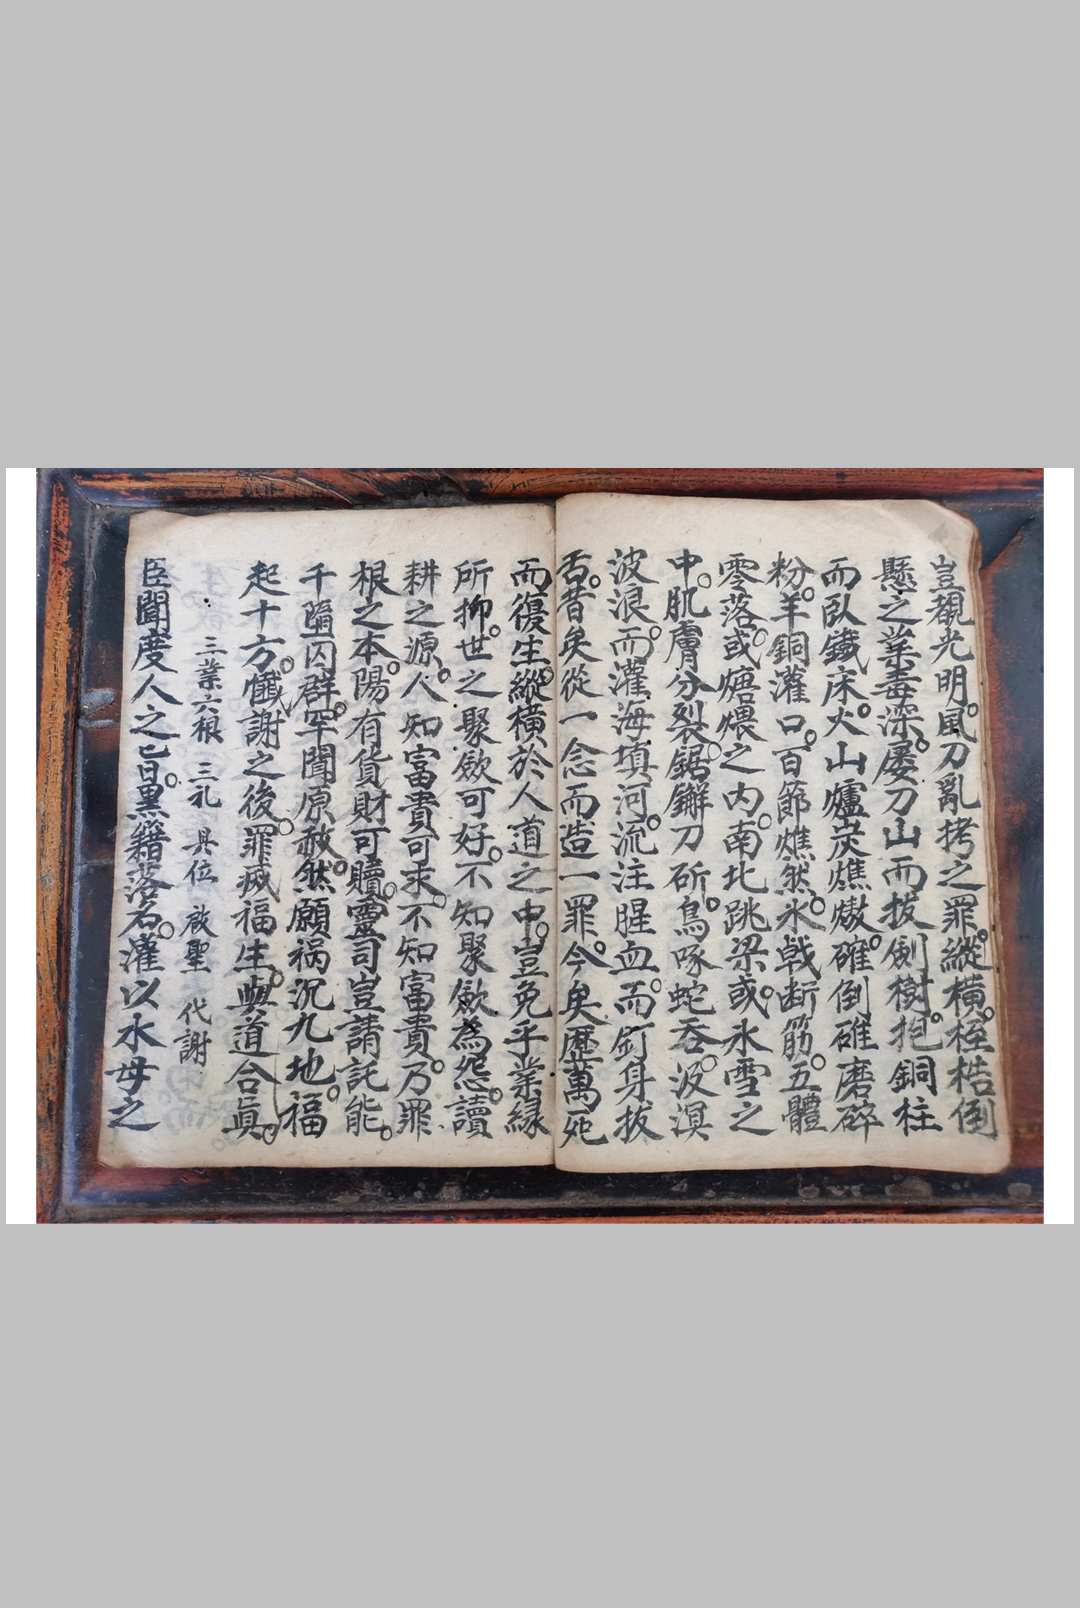 豈覩光明。風刀亂拷之罪。縱橫桎梏。倒
懸之業毒深。屡刀山而拔劍樹。抱銅柱
而臥鐵床。火山爐炭燋燉。碓倒磓磨碎
粉。羊銅灌口。百節燋然。氷戟断筋。五體
零落。或煻煨之內。南北跳梁。或氷雪之
中。肌膚分裂。鋸觧刀斫。鳥啄蛇吞。汲溟
波浪。而灌海填河。流注腥血。而釘身拔
舌。昔矣從一念而造一罪。今矣歷萬死
而復生。縱橫於人道之中。豈免乎業緣
所抑。世之聚歛可好。不知聚歛為怨。讀
耕之源。人知富貴可求。不知富貴。乃罪
根之本。陽有貨財可贖。靈司豈請託能。
千隔囚群。罕聞原赦。然願祸沉九地。福
起十方。懺謝之後。罪滅福生。與道合眞。
三業六根 三礼 具位 啟聖 代謝
臣聞度人之㫖。黑籍落名。灌以水母之